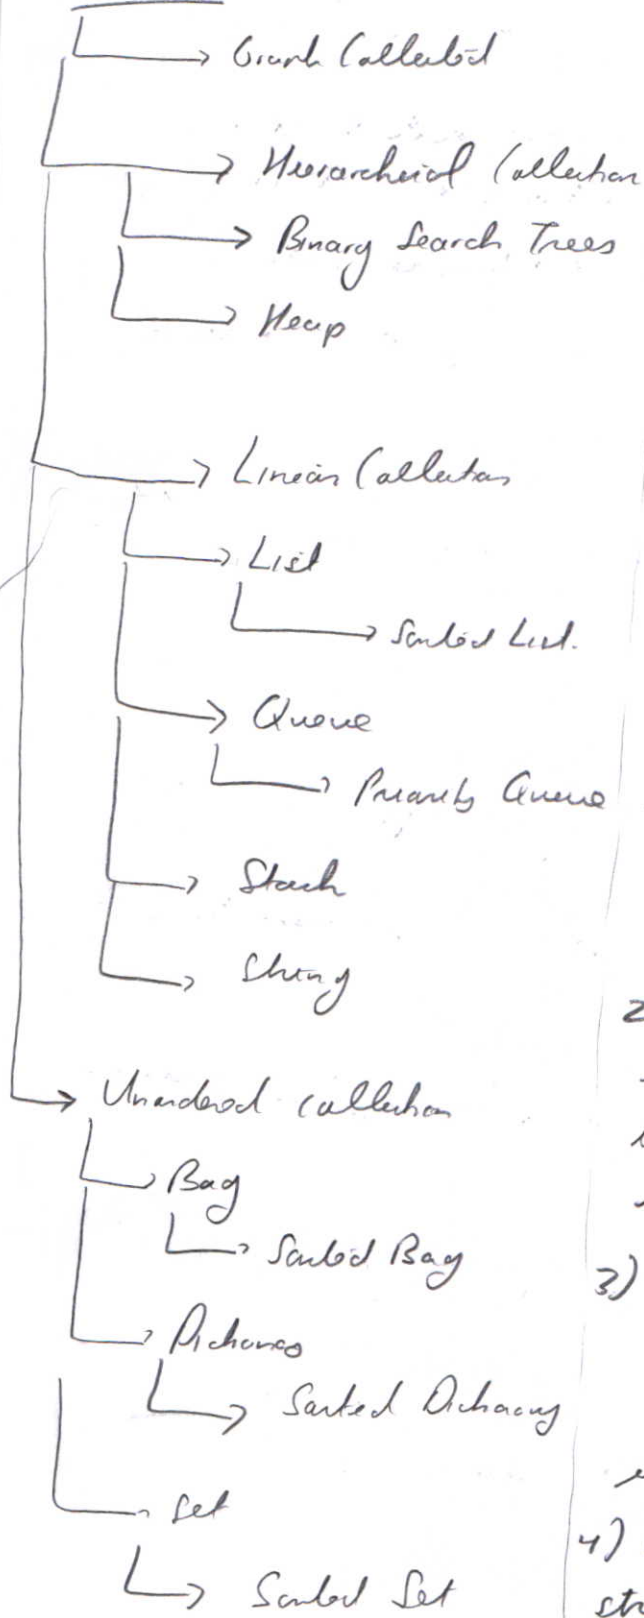 Graph Collection
Hierarchical Collection
Binary Search Trees
Heap
Linear Collections
List
Sorted List.
Queue
Priority Queue
Stack
String
Unordered collection
Bag
Sorted Bag
Dictionary
Sorted Dictionary
Set
Sorted Set
2
3)
4)